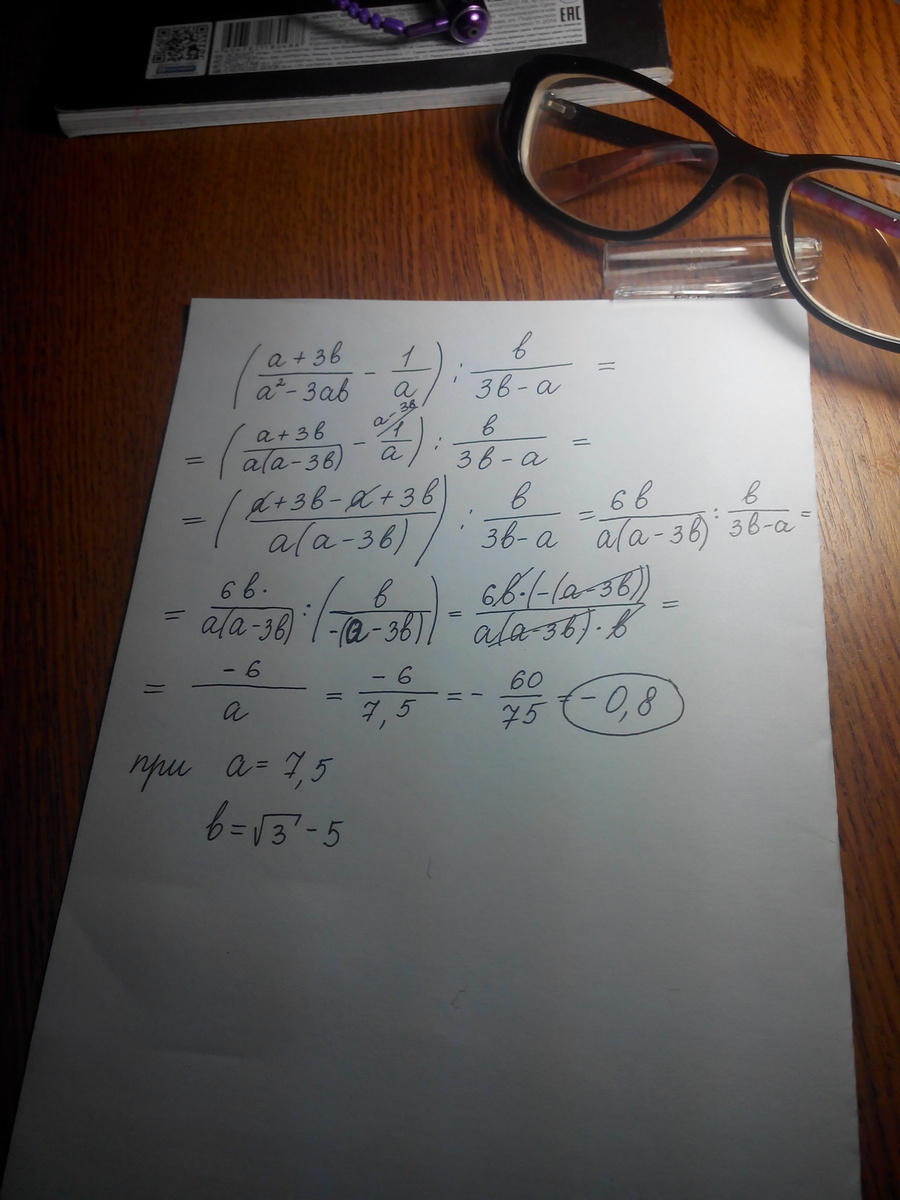 EAC
(a + 3b / a² - 3ab - 1 / a) : b / 3b - a =
= (a + 3b / a(a - 3b) - 1 / a ^(a - 3b)) : b / 3b - a =
= (a + 3b - a + 3b / a(a - 3b)) : b / 3b - a = 6b / a(a - 3b) : b / 3b - a =
= 6b· / a(a - 3b) : (b / -(a - 3b)) = 6b·(-(a - 3b)) / a(a - 3b)·b =
= -6 / a = -6 / 7,5 = - 60 / 75 = - 0,8
при a = 7,5
b = √3 - 5